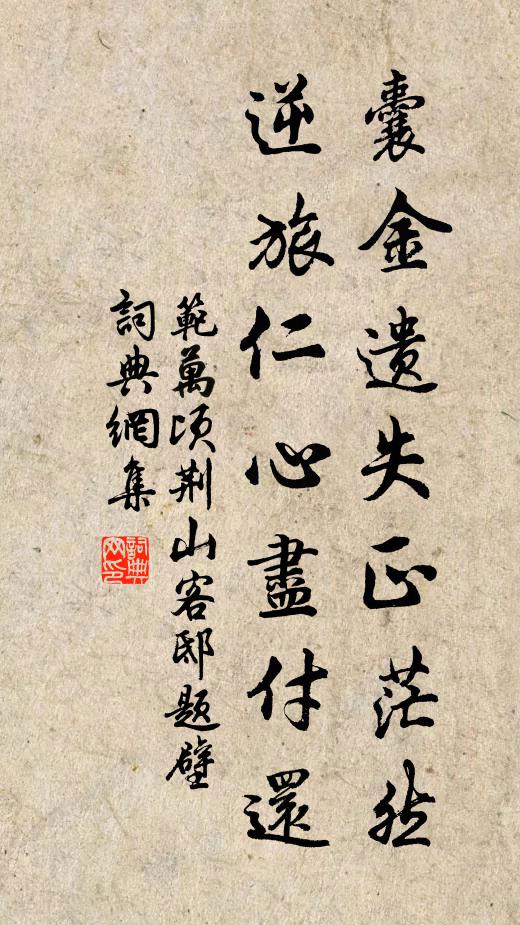 囊金遺失正茫然
逆旅仁心盡付還
範萬頃荆山客邸題壁
詞典網集
詞典网印